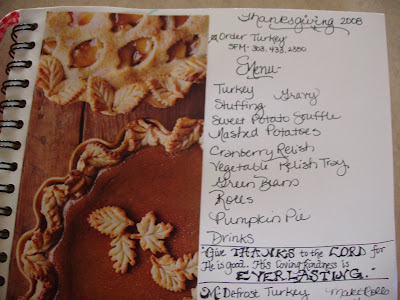 Thanksgiving 2008
Order Turkey
SFM- 303.433.2350
Menu
Turkey
Stuffing Gravy
Sweet Potato Souffle
Mashed Potatoes
Cranberry Relish
Vegetable Relish Tray
Green Beans
Rolls
Pumpkin Pie
Drinks
"Give THANKS to the LORD for
He is good.. His loving kindness is
EVERLASTING."
M- Defrost Turkey Make Rolls